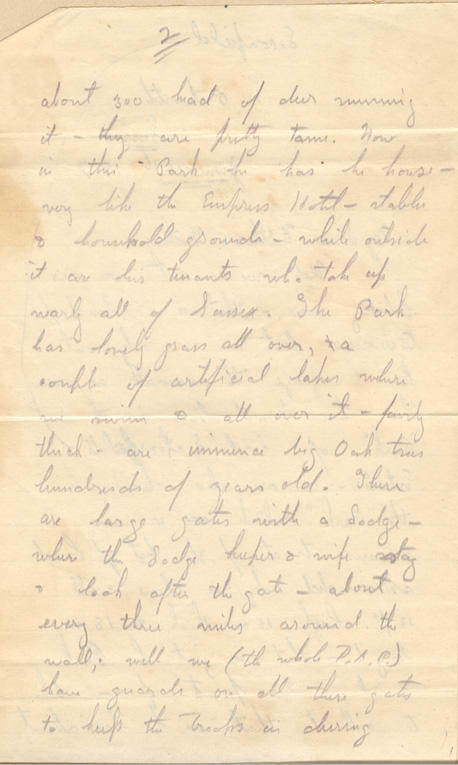 2
about 300 head of deer running
it - they are pretty tame. Now
in this Park he has he house -
very like the Empress Hotel - stables
& household grounds - while outside
it are his tenants who take up
nearly all of Sussex. The Park
has lovely grass all over, & a
couple of artificial lakes where
we swim & all over it - fairly
thick - are immence big Oak trees
hundreds of years old. There
are large gates with a Lodge -
where the Lodge keeper & wife stay
& look after the gate - about
every three miles around the
wall; well we (the whole D.A.C.)
have guards on all these gates
to keep the Troops in during